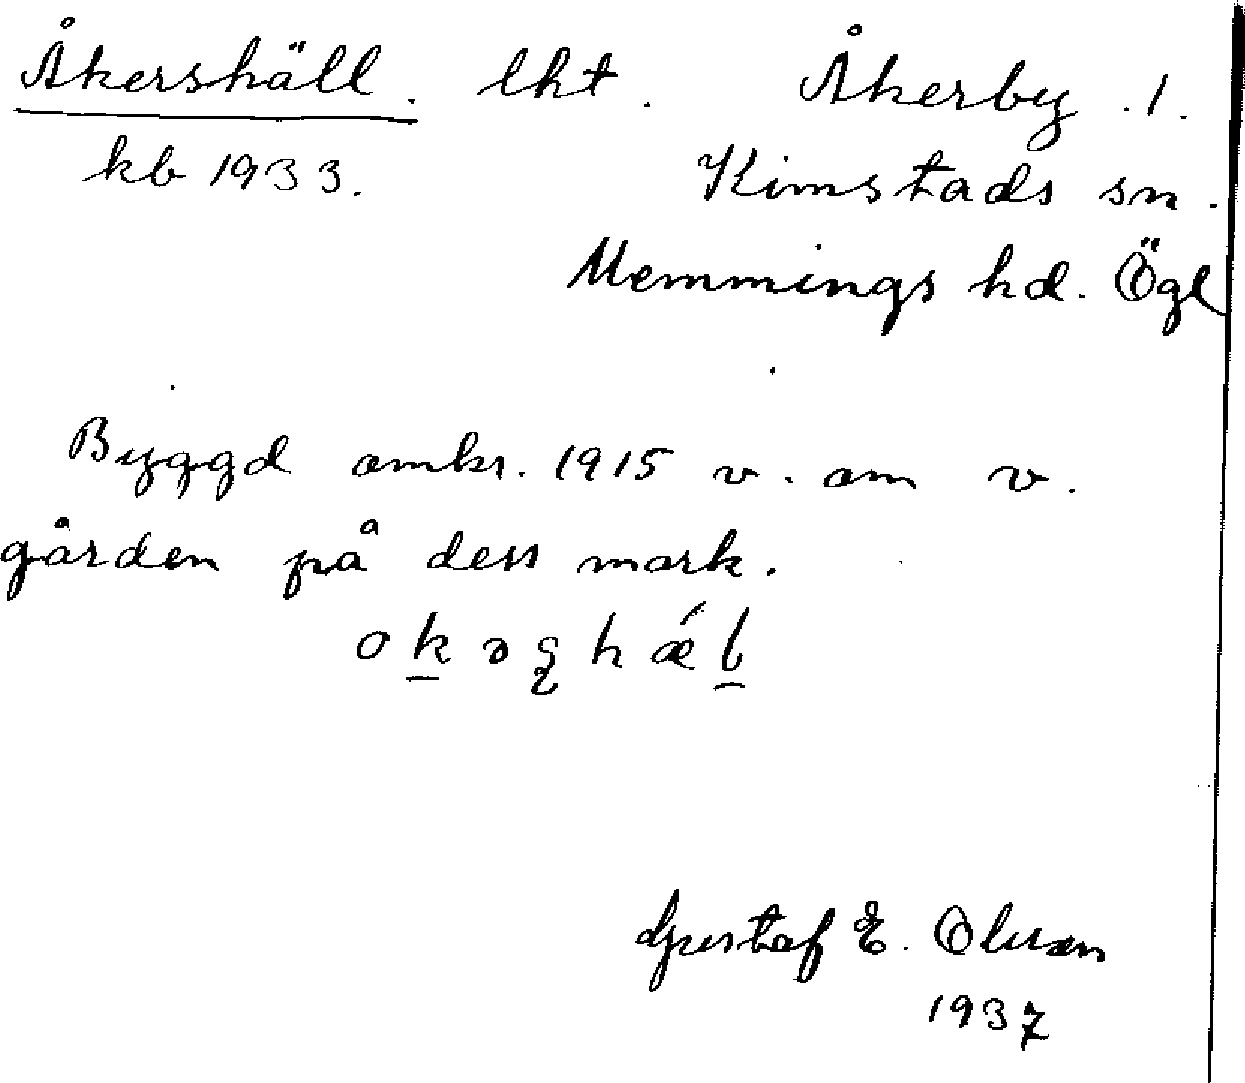 Åkershäll. lht. Åkerby .1.
kb 1933. Kimstads sn.
Memmings hd. Ögl
Byggd omkr. 1915 v. om v.
gården på dess mark.
Gustaf E. Olsson
1937